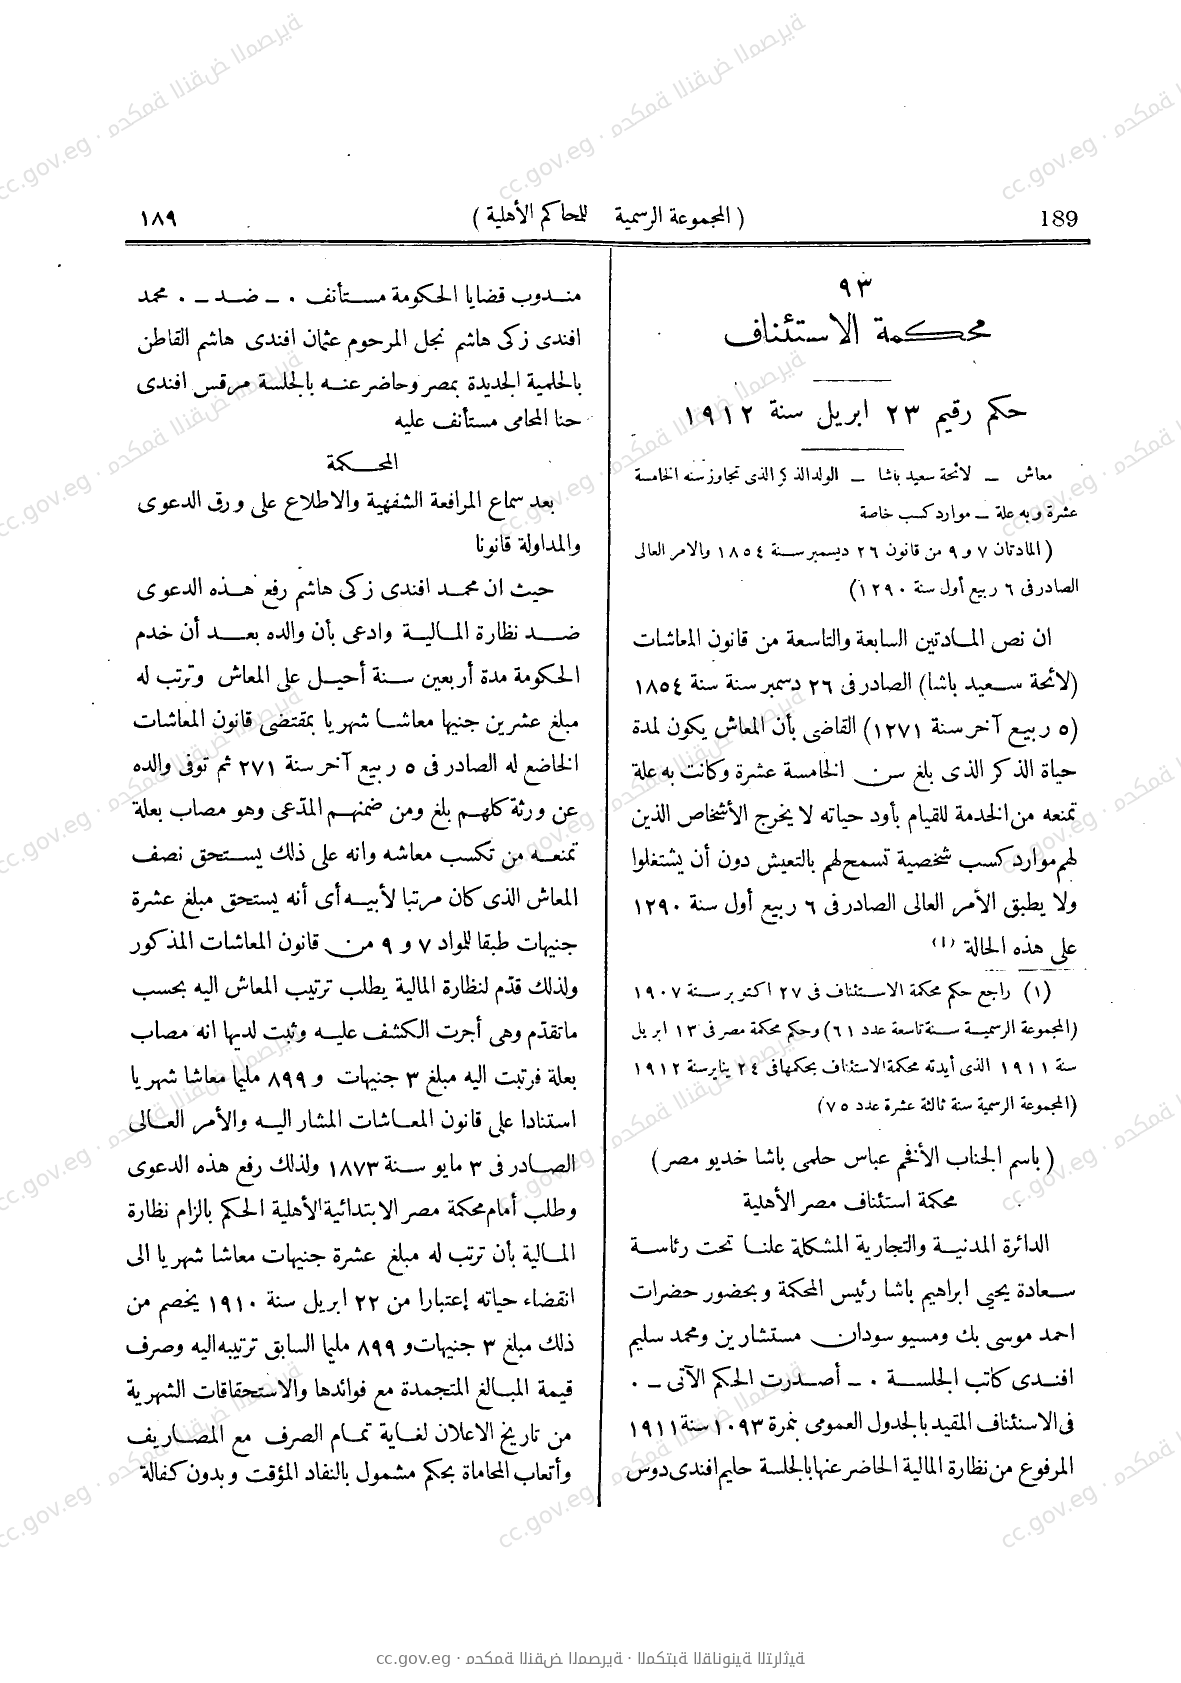 189 ( المجموعة الرسمية للمحاكم الأهلية ) ١٨٩
٩٣
محكمة الاستئناف
حكم رقيم ٢٣ ابريل سنة ١٩١٢
معاش – لائحة سعيد باشا – الولد الذكر الذى تجاوز سنه الخامسة
عشرة وبه علة – موارد كسب خاصة
( المادتان ٧ و ٩ من قانون ٢٦ ديسمبر سنة ١٨٥٤ والامر العالى
الصادر فى ٦ ربيع أول سنة ١٢٩٠)
ان نص المادتين السابعة والتاسعة من قانون المعاشات
(لائحة سعيد باشا) الصادر فى ٢٦ دسمبر سنة سنة ١٨٥٤
(٥ ربيع آخر سنة ١٢٧١) القاضى بأن المعاش يكون لمدة
حياة الذكر الذى بلغ سن الخامسة عشرة وكانت به علة
تمنعه من الخدمة للقيام بأود حياته لا يخرج الأشخاص الذين
لهم موارد كسب شخصية تسمح لهم بالتعيش دون أن يشتغلوا
ولا يطبق الأمر العالى الصادر فى ٦ ربيع أول سنة ١٢٩٠
على هذه الحالة (١)
(١) راجع حكم محكمة الاستئناف فى ٢٧ اكتوبر سنة ١٩٠٧
(المجموعة الرسمية سنة تاسعة عدد ٦١) وحكم محكمة مصر فى ١٣ ابريل
سنة ١٩١١ الذى أيدته محكمة الاستئناف بحكمها فى ٢٤ يناير سنة ١٩١٢
(المجموعة الرسمية سنة ثالثة عشرة عدد ٧٥)
( باسم الجناب الأفخم عباس حلمى باشا خديو مصر )
محكمة استئناف مصر الأهلية
الدائرة المدنية والتجارية المشكلة علنا تحت رئاسة
سعادة يحيى ابراهيم باشا رئيس المحكمة وبحضور حضرات
احمد موسى بك ومسيو سودان مستشارين ومحمد سليم
افندى كاتب الجلسة ٠ – أصدرت الحكم الآتى – ٠
فى الاستئناف المقيد بالجدول العمومى بنمرة ١٠٩٣ سنة ١٩١١
المرفوع من نظارة المالية الحاضر عنها بالجلسة حليم افندى دوس
مندوب قضايا الحكومة مستأنف ٠ – ضد – ٠ محمد
افندى زكى هاشم نجل المرحوم عثمان افندى هاشم القاطن
بالحلمية الجديدة بمصر وحاضر عنه بالجلسة مرقس افندى
حنا المحامى مستأنف عليه
المحكمة
بعد سماع المرافعة الشفهية والاطلاع على ورق الدعوى
والمداولة قانونا
حيث ان محمد افندى زكى هاشم رفع هذه الدعوى
ضد نظارة المالية وادعى بأن والده بعد أن خدم
الحكومة مدة أربعين سنة أحيل على المعاش وترتب له
مبلغ عشرين جنيها معاشا شهريا بمقتضى قانون المعاشات
الخاضع له الصادر فى ٥ ربيع آخر سنة ٢٧١ ثم توفى والده
عن ورثة كلهم بلغ ومن ضمنهم المدّعى وهو مصاب بعلة
تمنعه من تكسب معاشه وانه على ذلك يستحق نصف
المعاش الذى كان مرتبا لأبيه أى أنه يستحق مبلغ عشرة
جنيهات طبقا للمواد ٧ و ٩ من قانون المعاشات المذكور
ولذلك قدّم لنظارة المالية يطلب ترتيب المعاش اليه بحسب
ماتقدّم وهى أجرت الكشف عليه وثبت لديها انه مصاب
بعلة فرتبت اليه مبلغ ٣ جنيهات و ٨٩٩ مليما معاشا شهريا
استنادا على قانون المعاشات المشار اليه والأمر العالى
الصادر فى ٣ مايو سنة ١٨٧٣ ولذلك رفع هذه الدعوى
وطلب أمام محكمة مصر الابتدائية الأهلية الحكم بالزام نظارة
المالية بأن ترتب له مبلغ عشرة جنيهات معاشا شهريا الى
انقضاء حياته إعتبارا من ٢٢ ابريل سنة ١٩١٠ يخصم من
ذلك مبلغ ٣ جنيهات و ٨٩٩ مليما السابق ترتيبه اليه وصرف
قيمة المبالغ المتجمدة مع فوائدها والاستحقاقات الشهرية
من تاريخ الاعلان لغاية تمام الصرف مع المصاريف
وأتعاب المحاماة بحكم مشمول بالنفاد المؤقت وبدون كفالة
cc.gov.eg · محكمة النقض المصرية · المكتبة القانونية التراثية